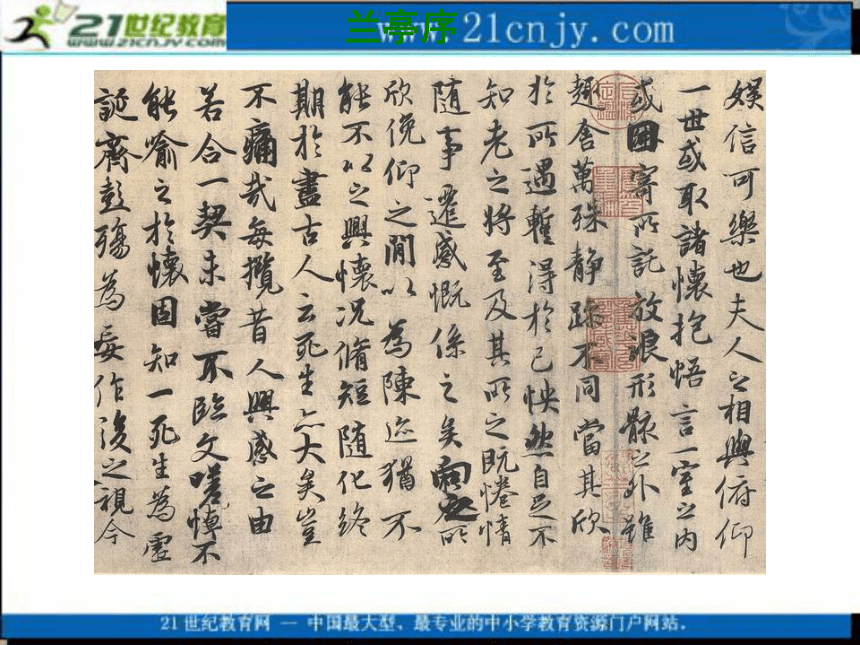 21世纪教育
www.21cnjy.com
兰亭序
www.21cnjy.com
娱信可樂也夫人之相與俯仰
一世或取諸懷抱悟言一室之内
或因寄所託放浪形骸之外雖
趣舍萬殊静躁不同當其欣
於所遇暫得於己怏然自足不
知老之將至及其所之既惓情
随事遷感慨係之矣向之所
欣俛仰之間以為陳迹猶不
能不以之興懷况脩短随化終
期於盡古人云死生亦大矣豈
不痛哉每攬昔人興感之由
若合一契未嘗不臨文嗟悼不
能喻之於懷固知一死生為虚
誕齊彭殤為妄作後之視今
21世纪教育网 — 中国最大型、最专业的中小学教育资源门户网站.